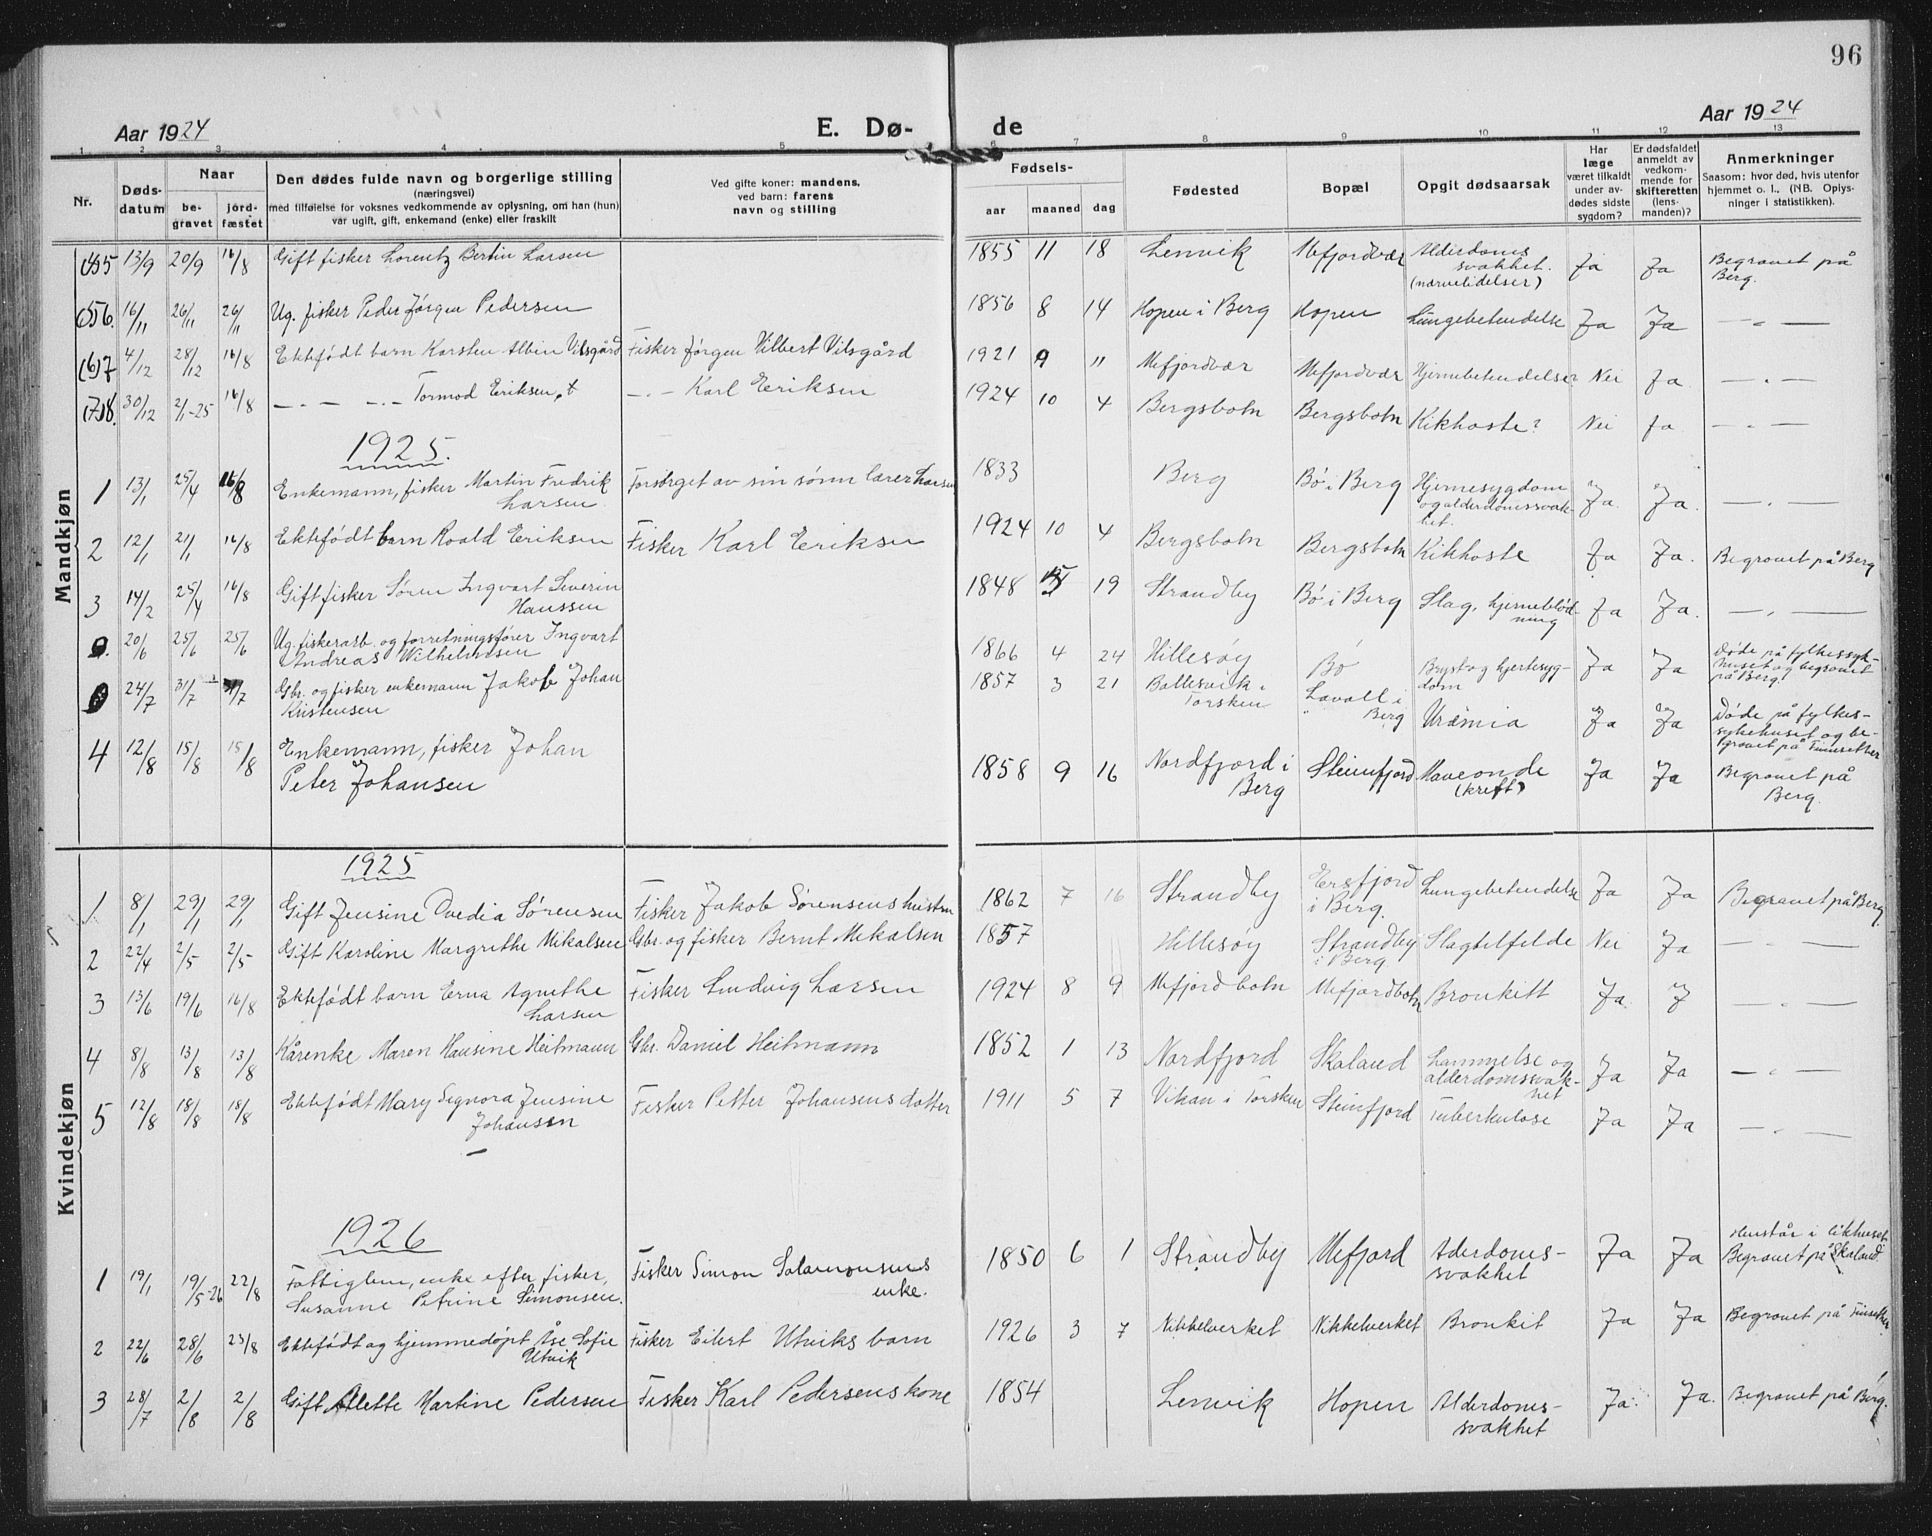 96
Aar 1924
E. Dø-
de
Aar 1924
1 2 3 4 5 6 7 8 9 10 11 12 13
Nr.
Døds-
datum
Naar
be-
gravet
jord-
fæstet
Den dødes fulde navn og borgerlige stilling
(næringsvei)
med tilføielse for voksnes vedkommende av oplysning, om han (hun)
var ugift, gift, enkemand (enke) eller fraskilt
Ved gifte koner: mandens,
ved barn: farens
navn og stilling
Fødsels-
aar maaned dag
Fødested
Bopæl
Opgit dødsaarsak
Har
læge
været tilkaldt
under av-
dødes sidste
sygdom?
Er dødsfaldet
anmeldt av
vedkom-
mende for
skifteretten
(lens-
manden)?
Anmerkninger
Saasom: hvor død, hvis utenfor
hjemmet o. l., (NB. Oplys-
ninger i statistikken).
Mandkjøn
(5)5 13/9 20/9 16/8 Gift fisker Lorentz Bertin Larsen 1855 11 18 Lenvik Mefjordvær Alderdoms
svakhet.
(nærvelidelser) Ja Ja Begravet på
Berg.
(5)6. 16/11 26/11 26/11 Ug. fisker Peder Jørgen Pedersen 1856 8 14 Hopen i Berg Hopen Lungebetendelse Ja Ja — " —
(6)7 4/12 28/12 16/8 Ektefødt barn Karsten Albin Vilsgård Fisker Jørgen Vilbert Vilsgård 1921 9 11 Mefjordvær Mefjordvær Hjernebetendelse? Nei Ja. — " —
(7)8. 30/12 2/1-25 16/8 — " — — " — Tormod Eriksen, t — " — Karl Eriksen 1924 10 4 Bergsbotn Bergsbotn Kikhoste? Nei Ja. — " —
1925.
1 13/1 25/4 16/8 Enkemann, fisker Martin Fredrik
Larsen. Forsørget av sin sønn lærer Larsen 1833 Berg Bø i Berg Hjernesygdom
og alderdomssvak-
het. Ja. Ja. — " —
2 12/1 21/1 16/8 Ektefødt barn Roald Eriksen Fisker Karl Eriksen 1924 10 4 Bergsbotn Bergsbotn Kikhoste Ja Ja. Begravet på Berg
3 14/2 25/4 16/8 Gift fisker Søren Ingvart Severin
Hanssen 1848 5 19 Strandby Bø i Berg Slag, hjerneblød-
ning Ja Ja. — " —
20/6 25/6 25/6 Ug. fiskerarb. og forretningsfører Ingvart
Andreas Wilhelmsen 1866 4 24 Hillesøy Bø Bryst og hjertesyg-
dom Ja Ja Døde på fylkessyk-
huset og begravet
på Berg.
24/7 31/7 31/7 Gbr. og fisker enkemann Jakob Johan
Kristensen 1857 3 21 Ballesvik i
Torsken Lavoll i
Berg Urämia Ja Ja Døde på fylkes-
sykehuset og be-
gravet på Finnsetter
4 12/8 15/8 15/8 Enkemann, fisker Johan
Peter Johansen 1858 9 16 Nordfjord i
Berg Steinfjord Maveonde
(kreft) Ja Ja Begravet på
Berg.
Kvindekjøn
1925
1 8/1 29/1 29/1 Gift Jensine Dvedia Sørensen Fisker Jakob Sørensens hustru 1862 7 16 Strandby Ersfjord
i Berg. Lungebetendelse Ja Ja Begravet på Berg.
2 22/4 2/5 2/5 Gift Karoline Margrethe Mikalsen Gbr. og fisker Bernt Mikalsen 1857 Hillesøy Strandby
i Berg. Slagtilfelde Nei Ja — " —
3 13/6 19/6 16/8 Ektefødt barn Erna Agnethe
Larsen Fisker Ludvig Larsen 1924 8 9 Mefjordbotn Mefjordbotn Bronkitt Ja. J — " —
4 8/8 13/8 13/8 Kårenke Maren Hansine Heitmann Gbr. Daniel Heitmann 1852 1 13 Nordfjord Skaland Lammelse og
alderdomssvak-
het Ja Ja — " —
5 12/8 18/8 18/8 Ektefødt Mary Signora Jensine
Johansen Fisker Petter Johansens datter 1911 5 7 Vikan i Torsken Steinfjord Tuberkulose Ja Ja — " —
1926
1 19/1 19/5-26 22/8 Fattiglem, enke efter fisker,
Susanne Petrine Simonsen. Fisker Simon Salamonsens
enke. 1850 6 1 Strandby Mefjord Alderdoms-
svakhet Ja Ja Henstår i likhuset.
Begravet på Skaland.
2 22/6 28/6 23/8 Ektefødt og hjemmedøpt Åse Sofie
Utvik Fisker Eilert Utviks barn 1926 3 7 Nikkelverket Nikkelverket Bronkit Ja Ja Begravet på Finnsetter
3 28/7 2/8 2/8 Gift Alette Martine Pedersen Fisker Karl Pedersens kone 1854 Lenvik Hopen Alderdoms-
svakhet Ja. Ja. Begravet på Berg.